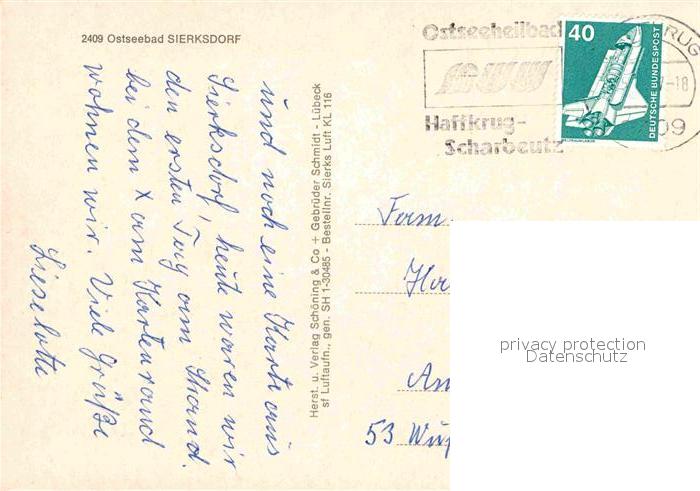 2409 Ostseebad SIERKSDORF
und noch eine Karte aus
Sierksdorf, heute waren wir
den ersten Tag am Strand.
bei dem X am Kartenrand
wohnen wir. Viele Grüße
Lieselotte
Herst. u. Verlag Schöning & Co + Gebrüder Schmidt - Lübeck
sf Luftaufn., gen. SH 1-30485 - Bestellnr. Sierks Luft KL 116
Ostseeheilbad
Haffkrug-
Scharbeutz
40
DEUTSCHE BUNDESPOST
RUG
-18
09
Fam
Ha
An
53 Wup
privacy protection
Datenschutz